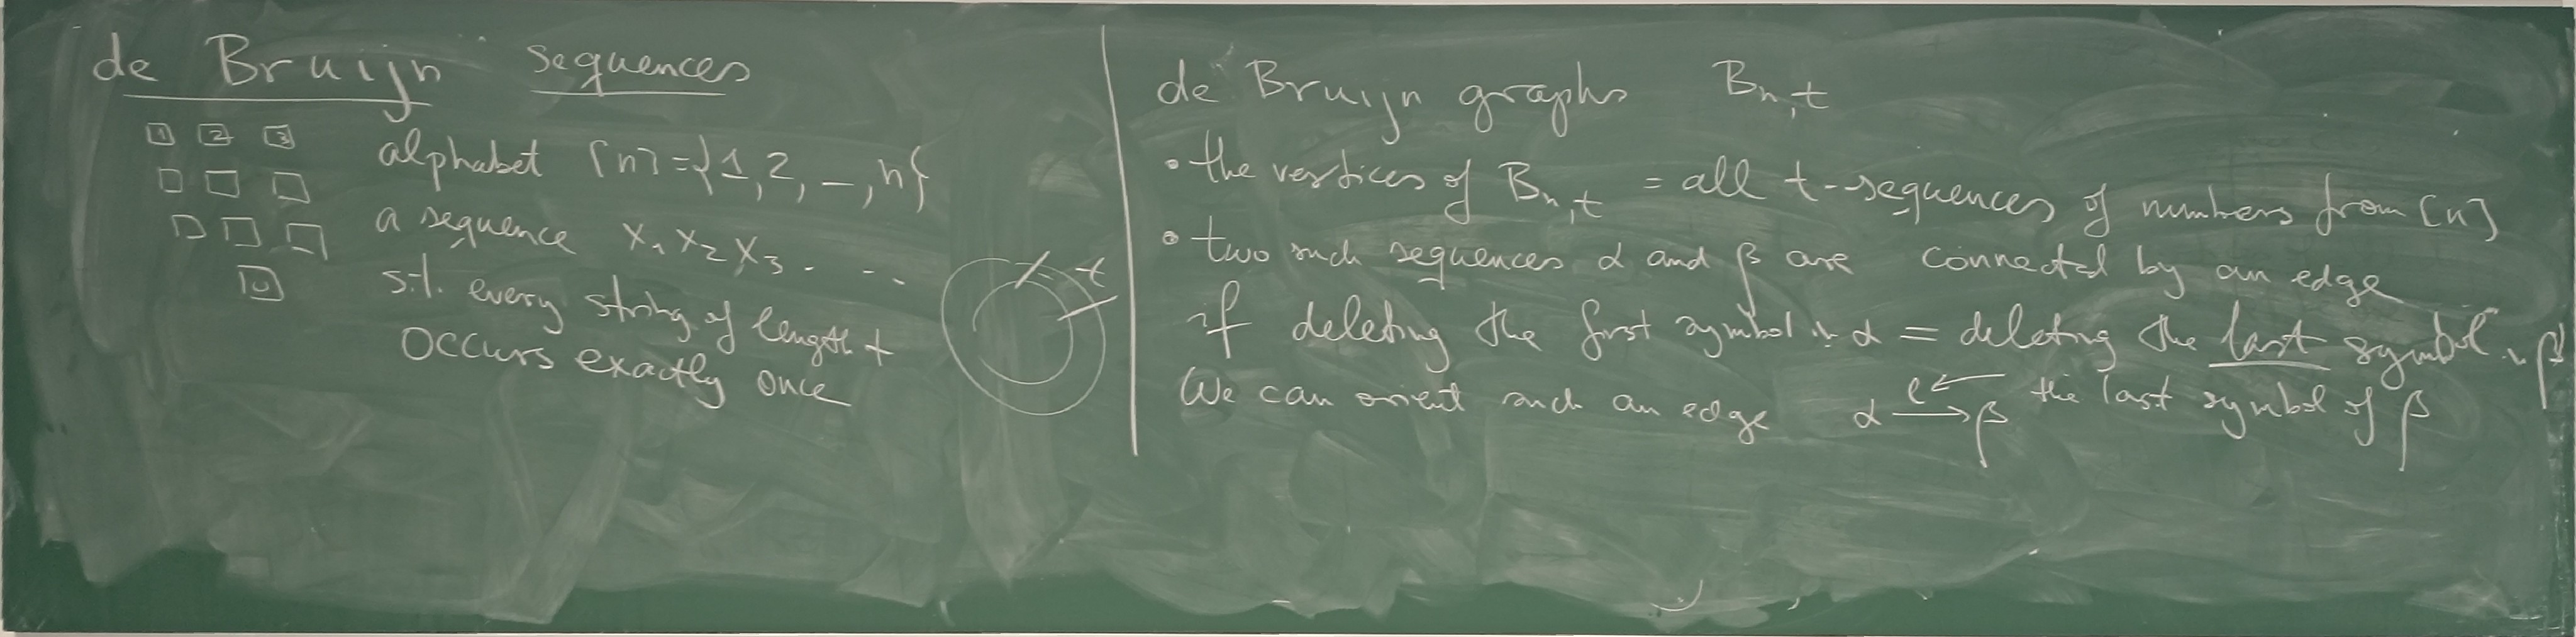 de Bruijn sequences
1 2 3
0
alphabet [n]={1,2,_,n}
a sequence x₁x₂x₃. ...
s.t. every string of length t
occurs exactly once
t
de Bruijn graphs Bₙ,ₜ
• the vertices of Bₙ,ₜ = all t-sequences of numbers from [n]
• two such sequences α and β are connected by an edge
if deleting the first symbol in α = deleting the last symbol in β
We can orient such an edge α →ℓ β ← the last symbol of β